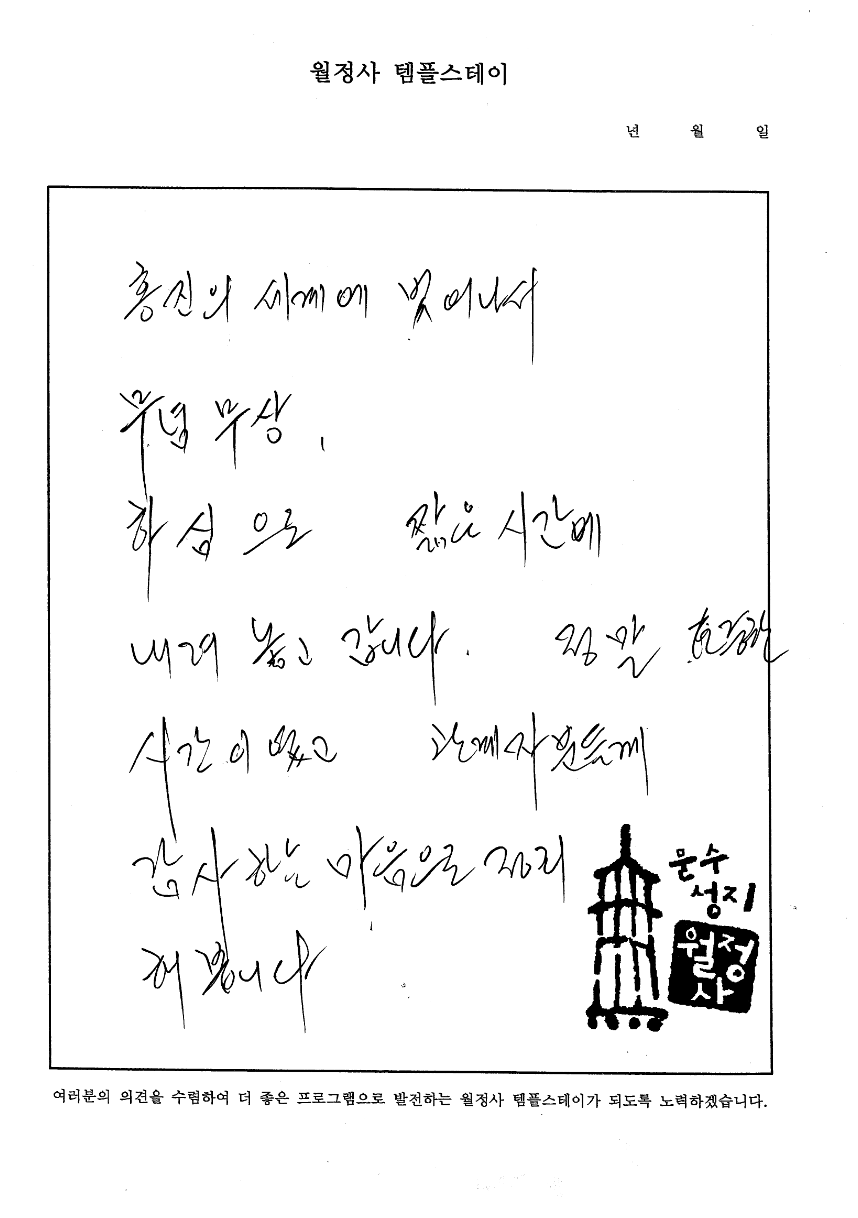 월정사 템플스테이
년 월 일
홍진의 세계에 벗어나서
무념 무상,
하심으로 짧은 시간에
내려 놓고 갑니다. 정말
시간이었고 관계자분들께
감사하는 마음으로 정리
해 봅니다
문수
성지
월정
사
여러분의 의견을 수렴하여 더 좋은 프로그램으로 발전하는 월정사 템플스테이가 되도록 노력하겠습니다.